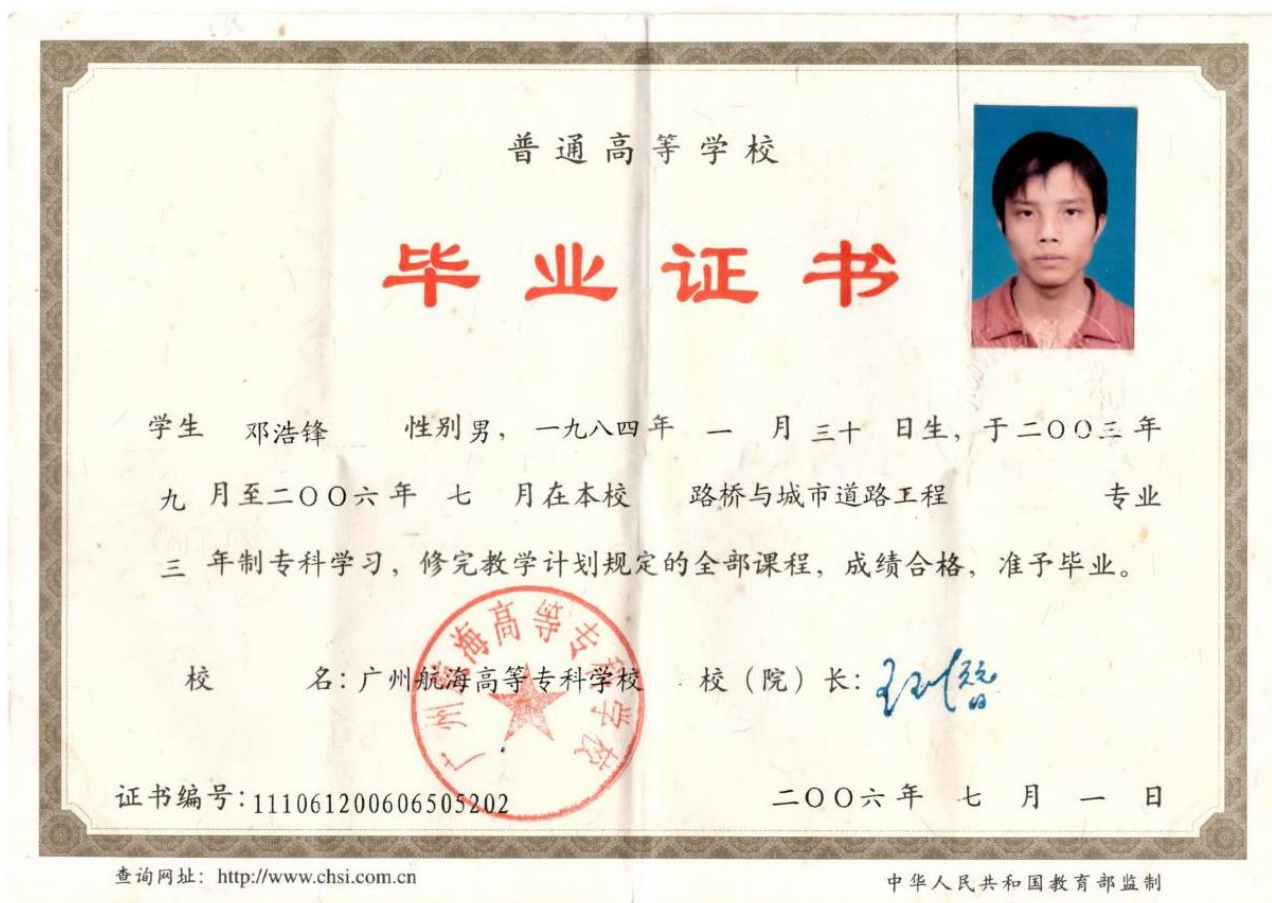 普通高等学校
毕业证书
学生 邓浩锋 性别男，一九八四年 一 月 三十 日生，于二〇〇三年
九 月至二〇〇六年 七 月在本校 路桥与城市道路工程 专业
三 年制专科学习，修完教学计划规定的全部课程，成绩合格，准予毕业。
校 名：广州航海高等专科学校 校（院）长：
广州航海高等专科学校
证书编号：111061200606505202 二〇〇六年 七 月 一 日
查询网址：http://www.chsi.com.cn 中华人民共和国教育部监制